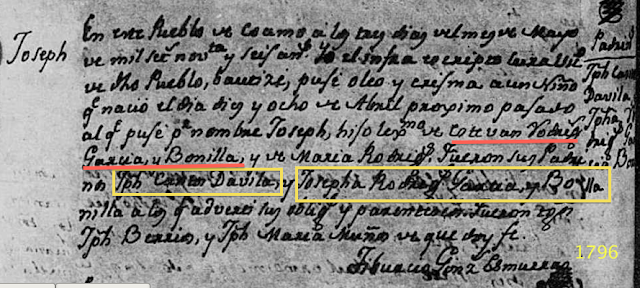 Joseph
En este Pueblo de Coamo a los tres dias del mes de Mayo
de mil set.s nov.ta y seis an.s yo el infra escripto Cura
de dho Pueblo, bautizé, pusé oleo y crisma a un Niño
q.e nació el dia dies y ocho de Abril proximo pasado
al q.e pusé p.r nombre Joseph, hijo lex.mo de Estevan Rodrig.s
Garcia, y Bonilla, y de Maria Rodrig.s Fueron sus Padri
nos Jph Davila, y Josepha Rodrig.s Garcia, y Bo
nilla a los q.e adverti su oblig.n y parentesco. Fueron tgos.
Jph Berrios, y Jph Maria Muños de que doy fe.
Tiburcio Gonz Esmurra
Padrin
Jph
Davila,
Jpha
1796